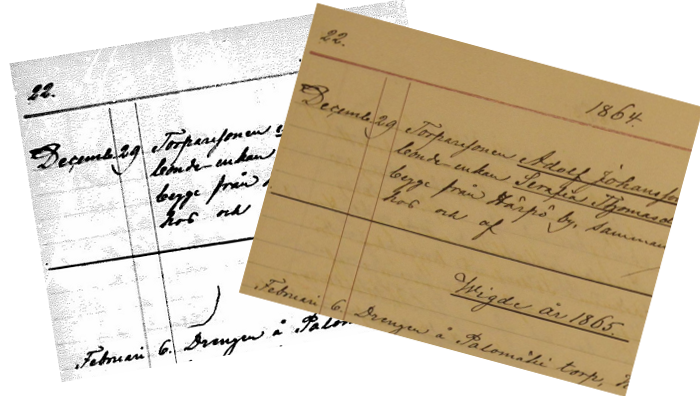 22.
December 29 Torparesonen
bonde-enkan
begge från
hos och
Februari 6. Drengen å Palom
22.
1864.
December 29 Torparesonen Adolf Johansson
bonde-enkan Serafia Thomasd
begge från Härpö by, samman
hos och af
Wigde år 1865.
Februari 6. Drengen å Palomäki torp,